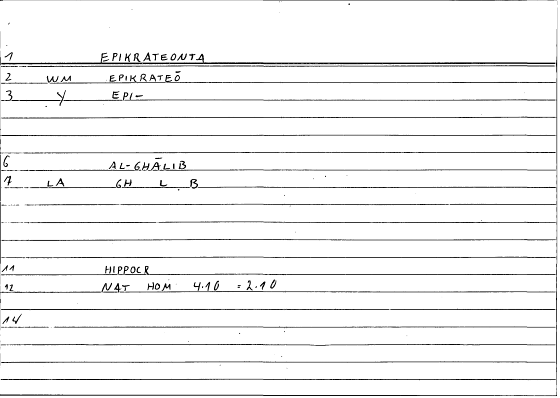 1 EPIKRATEONTA
2 WM EPIKRATEŌ
3 Y EPI-
6 AL-GHĀLIB
7 LA GH L B
11 HIPPOCR
12 NAT HOM 4.10 = 2.10
14